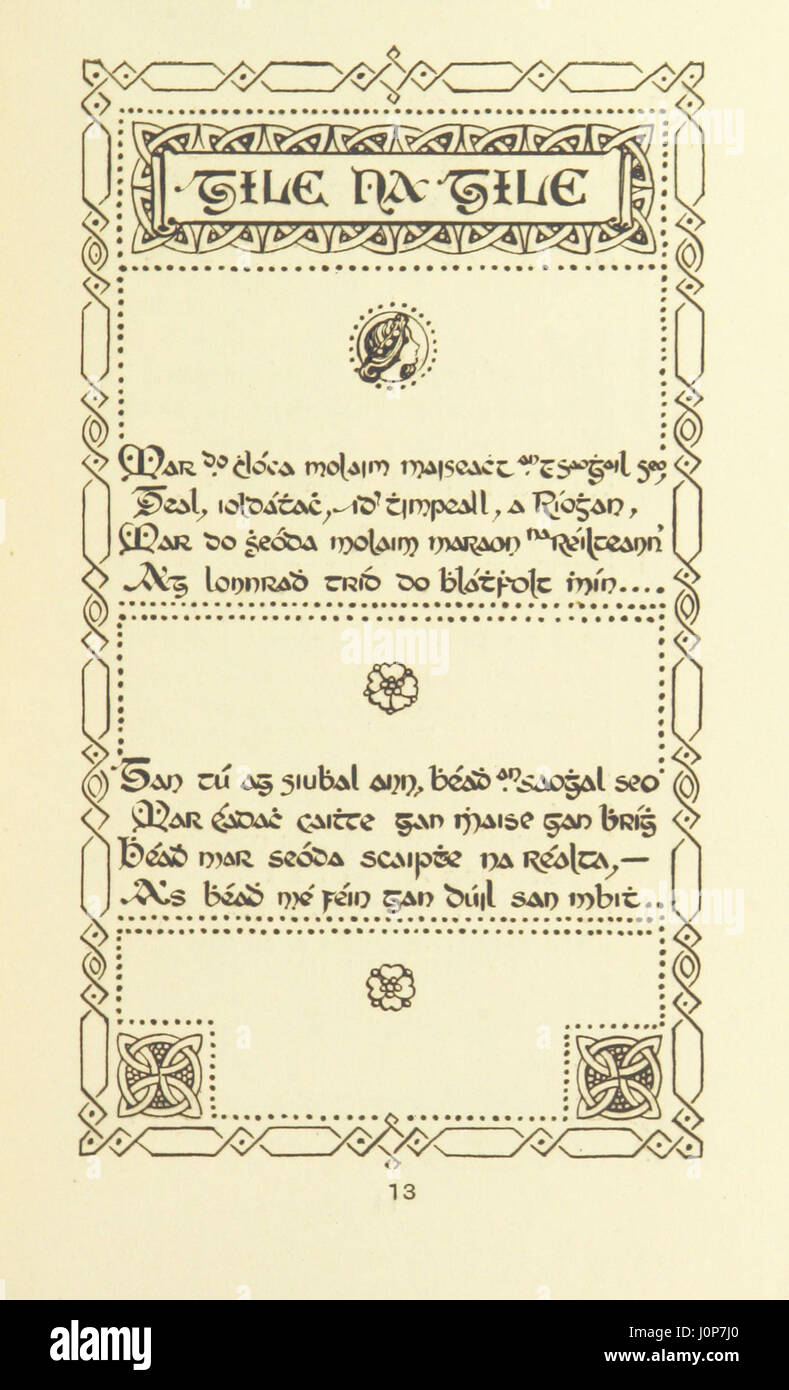 GILE NA GILE
Mar do ċlóca molaim maiseaċt an tsaoġail seo
Geal, ioldáṫaċ, id' ṫimpeall, a Ríoġan,
Mar do ṡeóda molaim maraon na Réilteann
A'g lonnraḋ tríd do ḃláṫḟolt ṁín....
Gan tú ag siuḃal ann, ḃéaḋ an saoġal seo
Mar éadaċ caiṫte gan ṁaise gan ḃríġ
Ḃéaḋ mar seóda scaipṫe na réalta,—
A's ḃéaḋ mé féin gan dúil san mbiṫ..
13
alamy
Image ID: J0P7J0
www.alamy.com